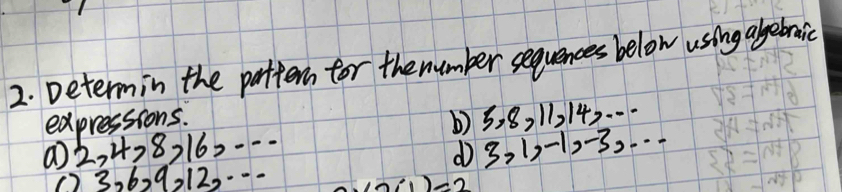 2. Determin the pattern for the number sequences below using algebraic
expressions.
a) 2, 4, 8, 16, ---- b) 5, 8, 11, 14, ---
c) 3, 6, 9, 12, --- d) 3, 1, -1, -3, ---